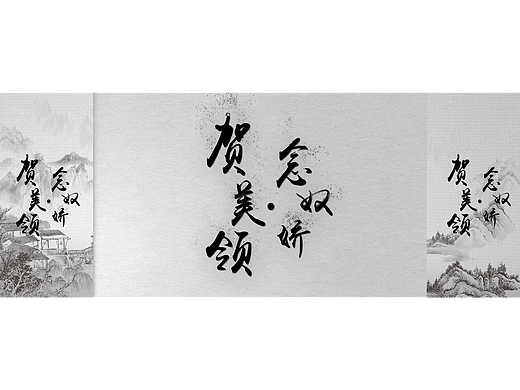 念奴娇
·贺美领
念奴娇
·贺美领
念奴娇
·贺美领